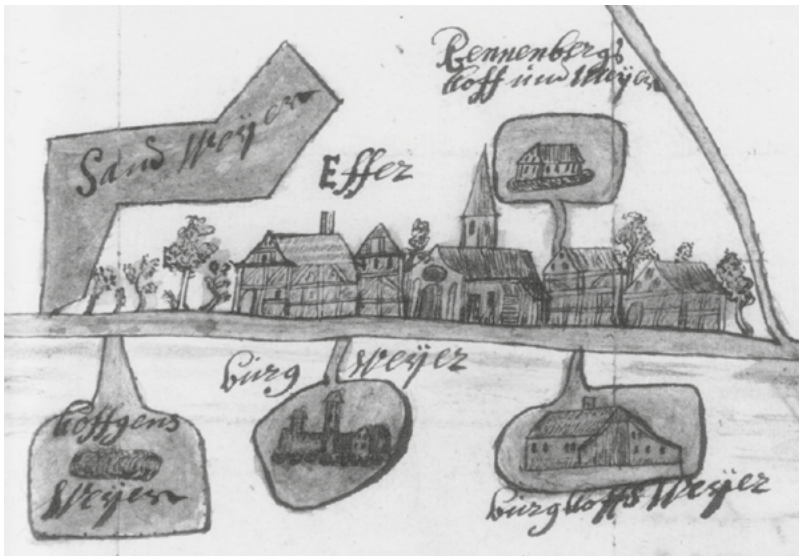 Rennenbergs
hoff und Weÿer
Sand Weÿer
Effer
burg Weÿer
hoffgens
Weÿer
burghoffs Weÿer